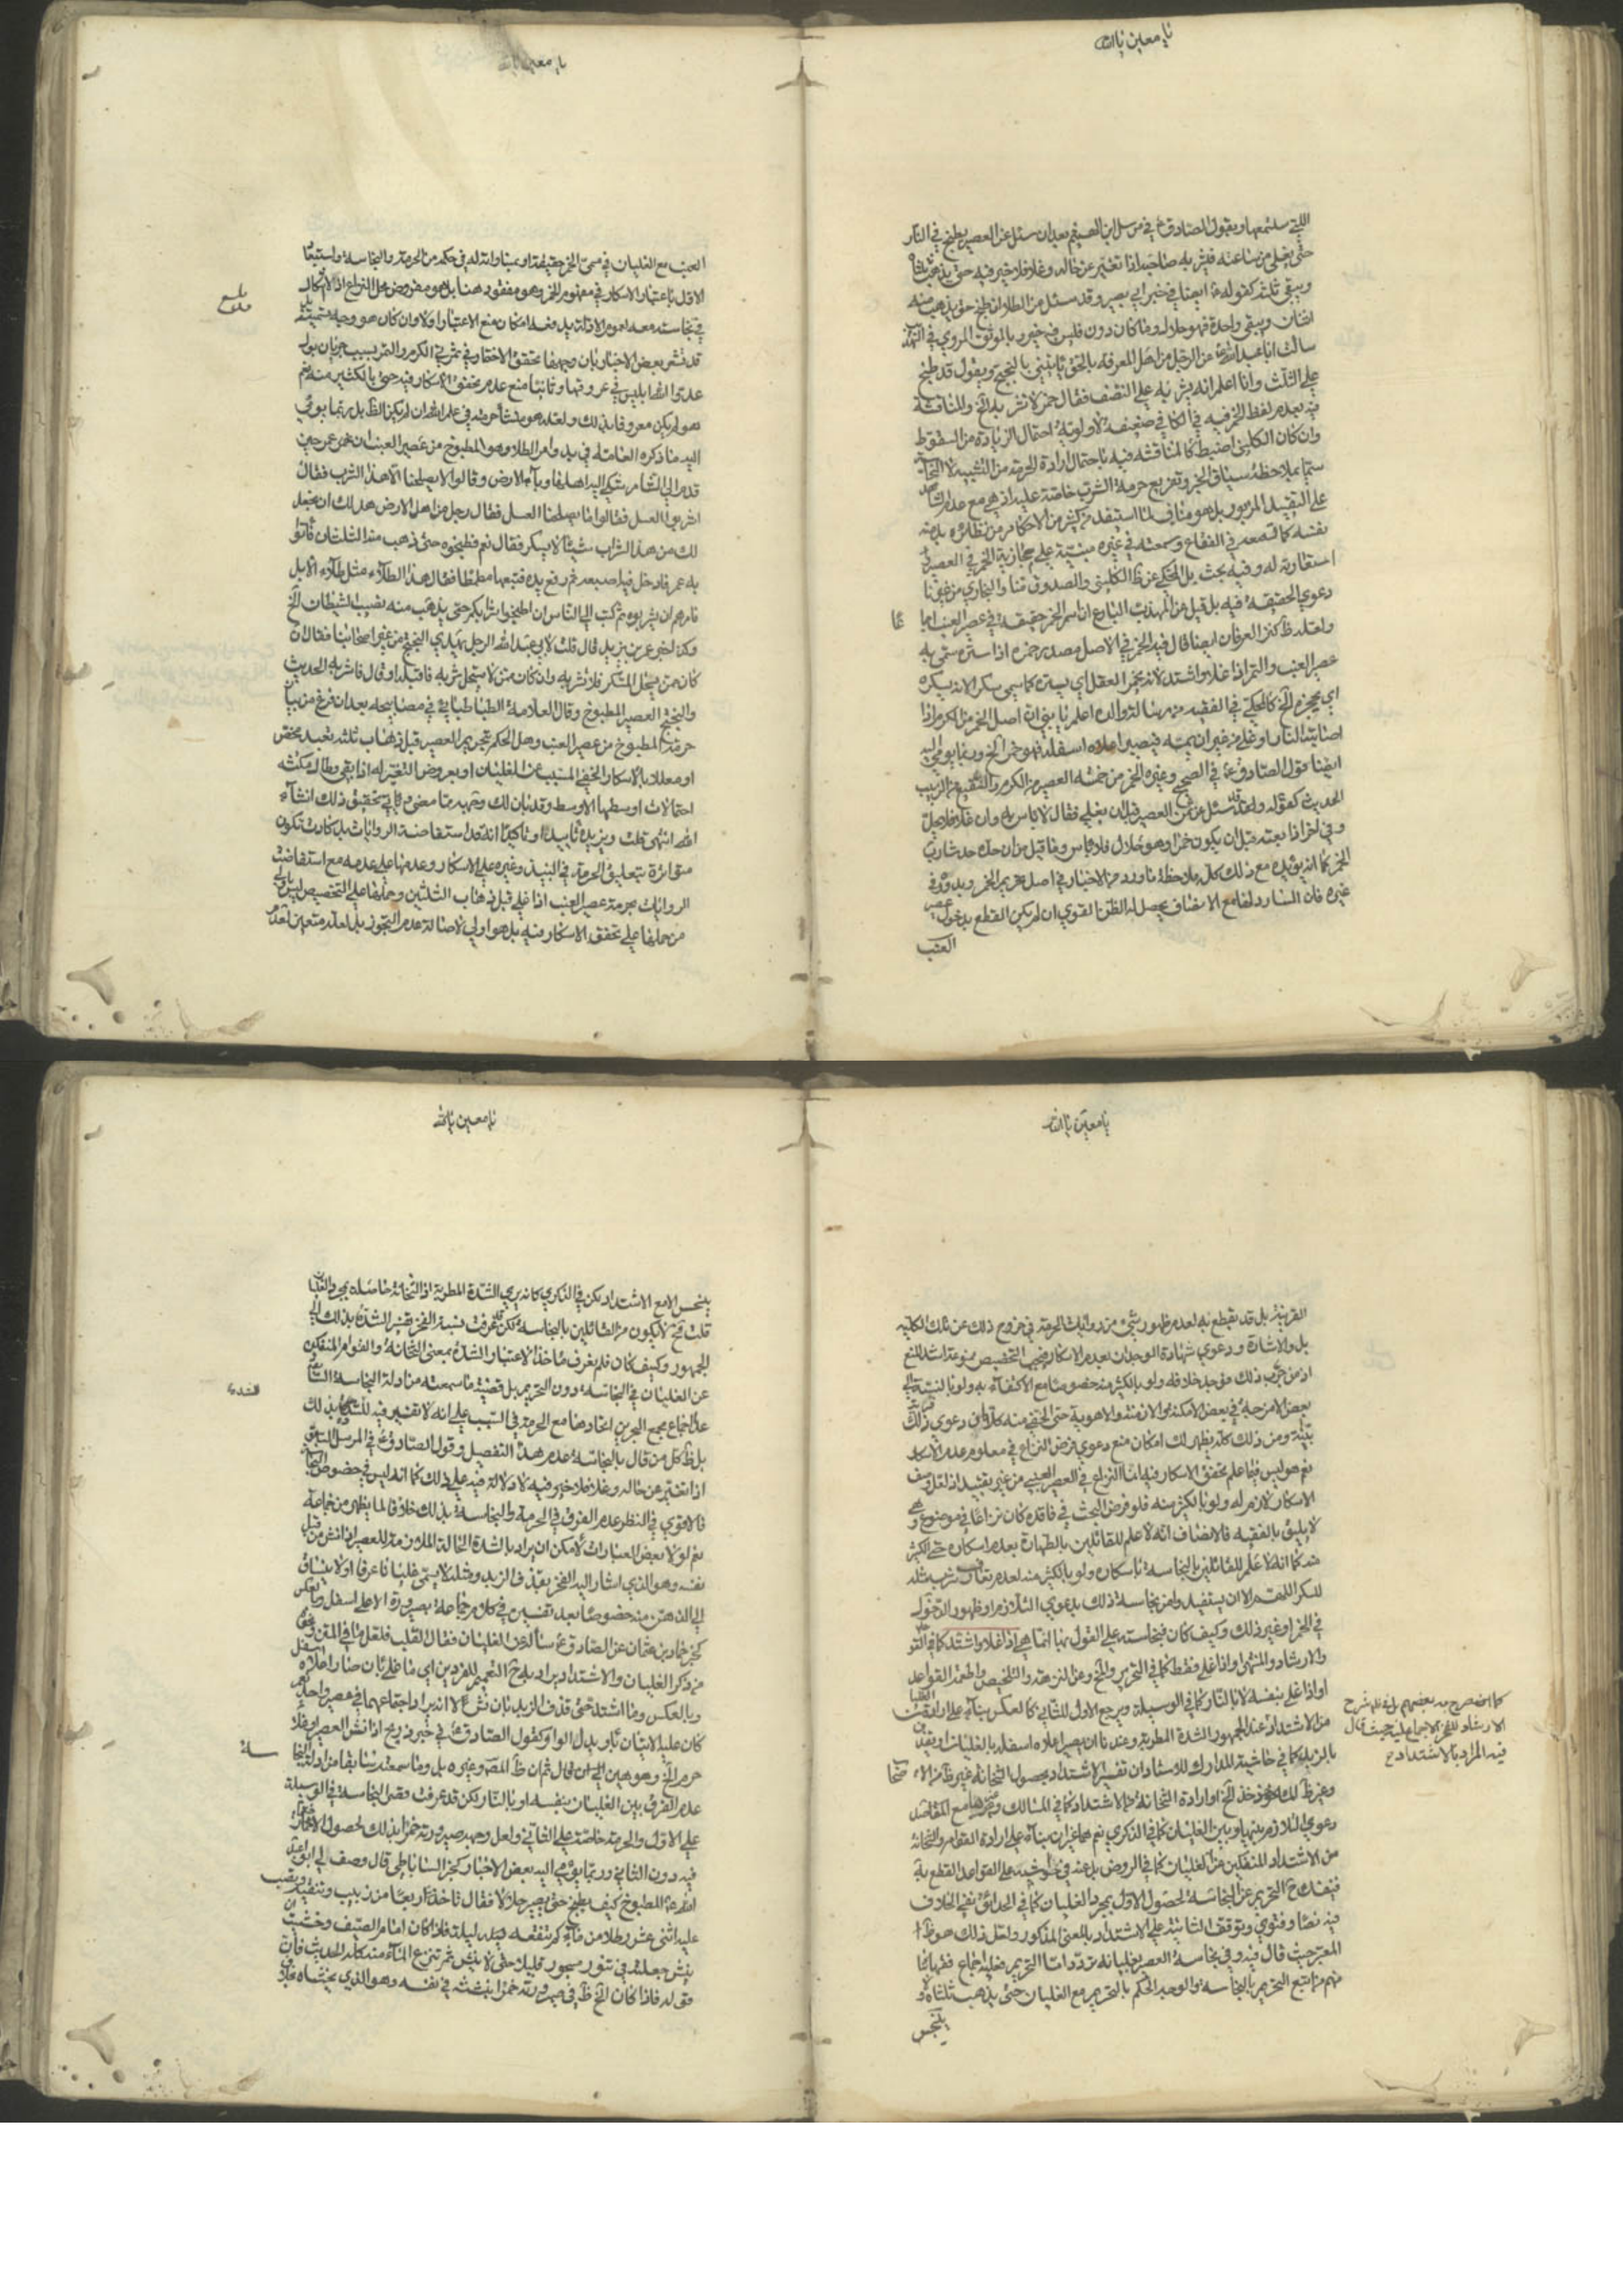 يا معين يا الله
التي سنسمعها وبقول الصادق ع في مرسل ابن الهيثم بعد ان سئل عن العصير يطبخ في النار
حتى يغلي من ساعته فيشربه صاحبه اذا تغير عن حاله وغلا فلا خير فيه حتى يذهب ثلثاه
ويبقى ثلثه كقوله ع ايضا في خبر ابي بصير وقد سئل عن الطلا ان طبخ حتى يذهب منه
اثنان ويبقى واحد فهو حلال وما كان دون فليس فيه خير وبالموثق المروي في التهذيب
سالت ابا عبد الله ع عن الرجل من اهل المعرفة بالحق ياتيني بالبختج ويقول قد طبخ
على الثلث وانا اعلم انه يشربه على النصف فقال خمر لا تشربه الخ والمناقشة
فيه بعدم لفظ الخمر فيه في الكافي ضعيفة لاولوية احتمال الزيادة من السقوط
وان كان الكليني اضبط كالمناقشة فيه باحتمال ارادة الحرمة من التشبيه لا النجاسة
سيما بملاحظة سياق الخبر وتفريع حرمة الشرب خاصة عليه اذ هي مع عدم
على التقييد المزبور بل هو مناف لما استفيد كثير من الاحكام من نظائره بل منه
نفسه كما قد سمعه في الفقاع وسمعته في غيره مبنية على مجازية الخمر في العصير او
استعارته له وفيه بحث بل المحكي عن ظ الكليني والصدوق منا والبخاري من غيرنا
دعوى الحقيقة فيه بل قيل عن المهذب البارع ان اسم الخمر حقيقة في عصير العنب اجماعا
ولعله ظ كنز العرفان ايضا قال فيه الخمر في الاصل مصدر خمره اذا ستره سمي به
عصير العنب والتمر اذا غلا واشتد لانه يخمر العقل اي يستره كما سمي سكرا لانه يسكره
اي يحجزه الخ كالمحكي في الفقيه من رسالة والده اعلم يا بني ان اصل الخمر من الكرم اذا
اصابته النار او غلى من غير ان تمسه فيصير اعلاه اسفله فهو خمر الخ وربما يومي اليه
ايضا قول الصادق ع في الصحيح وغيره الخمر من خمسة العصير من الكرم والنقيع من الزبيب
الحديث كقوله وقد سئل عن ثمن العصير قبل ان يغلي فقال لا باس به وان غلا فلا يحل
وفي اخر اذا بعته قبل ان يكون خمرا وهو حلال فلا باس وما قيل من ان حده حد شارب
الخمر كما انه يؤيده مع ذلك كله ملاحظة ما ورد من الاخبار في اصل تحريم الخمر وبدوه في
غيره فان السارد لها مع الانصاف يحصل له الظن القوي ان لم يكن القطع بدخول عصير
العنب
يا معين يا الله
العنب مع الغليان في مسمى الخمر حقيقة او مساواته له في حكمه من الحرمة والنجاسة واستبعاد
الاول باعتبار الاسكار في مفهوم الخمر وهو مفقود هنا بل هو مفروض محل النزاع اذ لا اشكال
في نجاسته معه لعموم الادلة يدفعه امكان منع الاعتبار اولا وان كان هو وجه تسميته
قد تشعر بعض الاخبار بان وجهها تحقق الاختمار في ثمرتي الكرم والتمر بسبب جريان بول
عدو الله ابليس في عروقها وثانيا منع عدم تحقق الاسكار فيه حتى بالكثير منه نعم
هو لم يكن معروفا بذلك ولعله هو منشا حرمته في علم الله ان لم يكن الظ بل ربما يومي
اليه ما ذكره العامة في بدو امر الطلا وهو المطبوخ من عصير العنب ان عمر حين
قدم الى الشام شكى اليه اهلها وباء الارض وقالوا لا يصلحنا الا هذا الشرب فقال
اشربوا العسل فقالوا ما يصلحنا العسل فقال رجل من اهل الارض هل لك ان نجعل
لك من هذا الشراب شيئا لا يسكر فقال نعم فطبخوه حتى ذهب منه الثلثان فاتوا
به عمر فادخل فيه اصبعه ثم رفع يده فتبعها مطمطا فقال هذا الطلاء مثل طلاء الابل
فامرهم ان يشربوه ثم كتب الى الناس ان اطبخوا شرابكم حتى يذهب منه نصيب الشيطان الخ
وكذا خبر عمر بن يزيد قال قلت لابي عبد الله الرجل يهدي البختج من غير اصحابنا فقال ان
كان ممن يستحل المسكر فلا تشربه وان كان ممن لا يستحل شربه فاقبله او قال فاشربه الحديث
والبختج العصير المطبوخ وقال العلامة الطباطبائي في مصابيحه بعد ان فرغ من بيان
حرمة المطبوخ من عصير العنب وهل الحكم بتحريم العصير قبل ذهاب ثلثيه تعبد محض
او معلل بالاسكار الخفي المسبب عن الغليان او بعروض التغير له اذا بقي وطال مكثه
احتمالات اوسطها الاوسط وقد بان لك وجهه مما معنى وياتي تحقيق ذلك انشاء
الله انتهى قلت ويزيده تاييدا وتاكيدا انه قد استفاضت الروايات بل كادت تكون
متواترة بتعليق الحرمة في النبيذ وغيره على الاسكار وعدمها على عدمه مع استفاضت
الروايات بحرمة عصير العنب اذا غلى قبل ذهاب الثلثين وحملها على التخصيص ليس باولى
من حملها على تحقق الاسكار فيه بل هو اولى لاصالة عدم التجوز بل لعله متعين لعدم
يا معين يا الله
القرينة بل قد يقطع به لعدم ظهور شيء من روايات الحرمة في خروج ذلك عن تلك الكلية
بل ولا اشارة ودعوى شهادة الوجدان بعدم الاسكار فيجب التخصيص ممنوعة اشد المنع
اذ من جرب ذلك فوجد خلافه ولو بالكثير منه خصوصا مع الاكتفاء به ولو بالنسبة الى
بعض الامزجة في بعض الامكنة والازمنة والاهوية حتى الخفي منه كله واني دعوى ذلك
بينة ومن ذلك كله يظهر لك امكان منع دعوى فرض النزاع في معلوم عدم الاسكار
نعم هو ليس فيما علم تحقق الاسكار فيه انما النزاع في العصير العنبي من غير تقييد اذ لعل وصف
الاسكار لازم له ولو بالكثير منه فلو فرض البحث في فاقده كان نزاعا في موضوع وهمي
لا يليق بالفقيه فالانصاف انه لا علم للقائلين بالطهارة بعدم اسكاره حتى الكثير
منه كما انه لا علم للقائلين بالنجاسة باسكاره ولو بالكثير منه لعدم تعارف شرب مثله
للسكر اللهم الا ان يستفيد ولو من نجاسته ذلك بدعوى التلازم او ظهور الدخول
في الخمر او غير ذلك وكيف كان فنجاسته على القول بها انما هي اذا غلا واشتد كما في
والارشاد والمنتهى واذا غلى فقط كما في التحرير والمحكي وعن النزهة والتلخيص واطعمة القواعد
او اذا غلى بنفسه لا بالنار كما في الوسيلة ويرجع الاول للثاني كالعكس بناء على ارادة الغليان
من الاشتداد عند الجمهور الشدة المطربة وعندنا ان يصير اعلاه اسفله بالغليان او يقذف
بالزبد كما في حاشية المدارك للاستاد ان تفسير الاشتداد بحصول الثخانة غير ظاهر
دعوى التلازم بينها وبين الغليان كما في الذكرى نعم هما غيران بناء على ارادة القوام والثخانة
من الاشتداد المنفكين عن الغليان كما في الروض بل عنه في حواشيه على القواعد القطع به
فينفك ح التحريم عن النجاسة لحصول الاول بمجرد الغليان كما في الحدائق نفي الخلاف
فيه نصا وفتوى وتوقف الثانية على الاشتداد بالمعنى المذكور ولعل ذلك هو ظ
المعتبر حيث قال فيه وفي نجاسة العصير بغليانه تردد اما التحريم فعليه اجماع فقهائنا
منهم من اتبع التحريم بالنجاسة والوجه الحكم بالتحريم مع الغليان حتى يذهب ثلثاه ولا
ينجس
كما صرح به بعضهم بل في شرح
الارشاد للفخر الاجماع عليه حيث قال
فيه المراد بالاشتداد
يا معين يا الله
ينجس الا مع الاشتداد لكن في الذكرى كانه يرى الشدة المطربة اذ الثخانة حاصلة بمجرد الغليان
قلت فح لا يكون من القائلين بالنجاسة لكن قد عرفت نسبة الفخر تفسير الشدة بذلك الى
الجمهور وكيف كان فلم يعرف ماخذا لاعتبار الشدة بمعنى الثخانة والقوام المنفكين
عن الغليان في النجاسة دون التحريم بل قضية ما سمعته من ادلة النجاسة السابقة
عدا اجماع مجمع البحرين اتحادهما مع الحرمة في السبب على انه لا تفسير فيه للشدة بذلك
بل ظ كل من قال بالنجاسة عدم هذا التفصيل وقول الصادق ع في المرسل السابق
اذا تغير عن حاله وغلا فلا خير فيه لا دلالة فيه على ذلك كما انه ليس في خصوص النجاسة
فالاقوى في النظر عدم الفرق في الحرمة والنجاسة بذلك خلافا لما يظهر من جماعة
نعم لولا بعض العبارات لامكن ان يراد بالشدة الحالة الملازمة للعصير اذا نش من قبل
نفسه وهو الذي اشار اليه الفخر بقذف الزبد ومثله لا يسمى غليانا عرفا او لا ينساق
الى الذهن منه خصوصا بعد تفسيره في كلام جماعة بصيرورة الاعلى اسفل وبالعكس
كخبر حماد بن عثمان عن الصادق ع سالته عن الغليان فقال القلب فلعل ما في المتن ونحوه
من ذكر الغليان والاشتداد يراد به ح التعميم للفردين اي ما غلى بان صار اعلاه اسفل
وبالعكس وما اشتد حتى قذف الزبد بان نش لا انه يراد اجتماعهما في عصير واحد
كان عليه الاتيان باو بدل الواو كقول الصادق ع في خبر ذريح اذا نش العصير او غلا
حرم الخ وهو هين الى ان قال ثم ان ظ المصه وغيره بل وما سمعته سابقا من ادلة النجاسة
عدم الفرق بين الغليان بنفسه او بالنار لكن قد عرفت قصر النجاسة في الوسيلة
على الاول والحرمة خاصة على الثاني ولعل وجهه صيرورته خمرا بذلك لحصول الاختمار
فيه دون الثاني وربما يومي اليه بعض الاخبار كخبر الساباطي قال وصف لي ابو عبد
الله ع المطبوخ كيف يطبخ حتى يصير حلالا فقال تاخذ ربعا من زبيب وتنقيه وتصب
عليه اثنى عشر رطلا من ماء ثم تنقعه ليلة فاذا كان ايام الصيف وخشيت
ينش جعلته في تنور مسجور قليلا حتى لا ينش ثم تنزع الماء منه كله الحديث فان
قوله فاذا كان الخ ظ في صيرورته خمرا بنشه في نفسه وهو الذي يخشاه